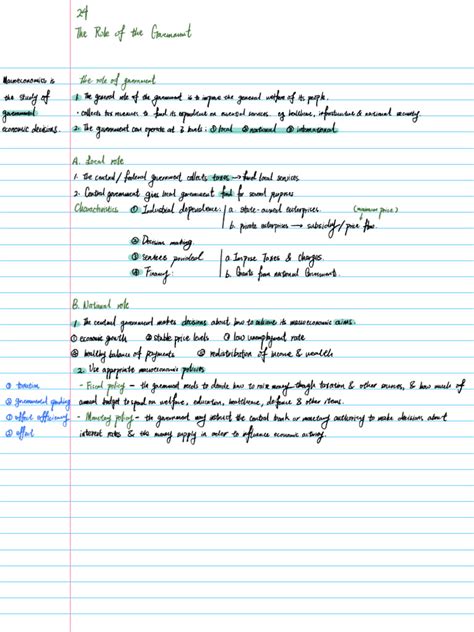 24
The Role of the Government
Macroeconomics is
the study of
government
economic decisions.
the role of government
1. The general role of the government is to improve the general welfare of its people.
· collects tax revenues to fund its expenditure on essential services. eg. healthcare, infrastructure & national security.
2. The government can operate at 3 levels: ① local ② national ③ international
A. Local role
1. The central / federal government collects taxes → fund local services
2. Central government gives local government fund for several purposes
Characteristics ① Industrial dependence: a. state-owned enterprises. (minimum price)
b. private enterprises → subsidy / price floor.
② Decision making.
③ services provided a. Impose Taxes & charges.
④ Financing: b. Grants from national Governments.
B. National role
1. The central government makes decisions about how to achieve its macroeconomic aims.
① economic growth ② stable price levels ③ low unemployment rate
④ healthy balance of payments ⑤ redistribution of income & wealth
2. Use appropriate macroeconomic policies
① taxation
② government spending
③ effect efficiency
④ effect
- Fiscal policy - the government needs to decide how to raise money through taxation & other sources, & how much of
annual budget to spend on welfare, education, healthcare, defence & other items.
- Monetary policy - the government may instruct the central bank or monetary authority to make decisions about
interest rates & the money supply in order to influence economic activity.